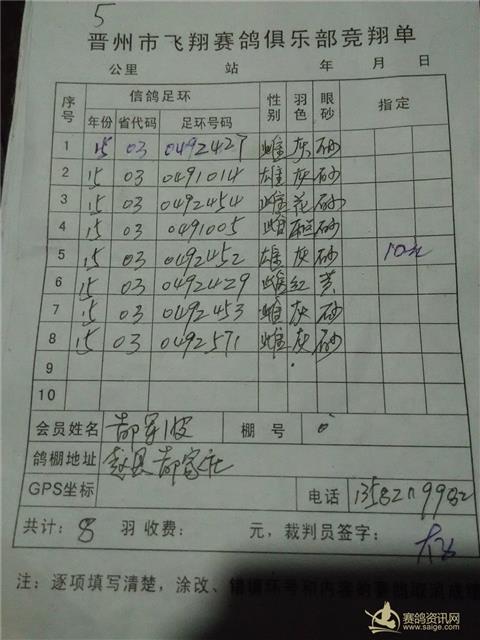 5
晋州市飞翔赛鸽俱乐部竞翔单
公里 站 年 月 日
序号 信鸽足环 性别 羽色 眼砂 指定
年份 省代码 足环号码
1 15 03 0492427 雌 灰 砂
2 15 03 0491014 雄 灰 砂
3 15 03 0492454 雌 花 砂
4 15 03 0491005 雌 砂
5 15 03 0492452 雄 灰 砂
6 15 03 0492429 雌 红 黄
7 15 03 0492453 雌 灰 砂
8 15 03 0492571 雌 灰 砂
9
10
会员姓名 郝军波 棚号
鸽棚地址 赵县郝家庄
GPS坐标 电话
共计: 8 羽 收费: 元, 裁判员签字:
注: 逐项填写清楚, 涂改、错
赛鸽资讯网
www.saige.com